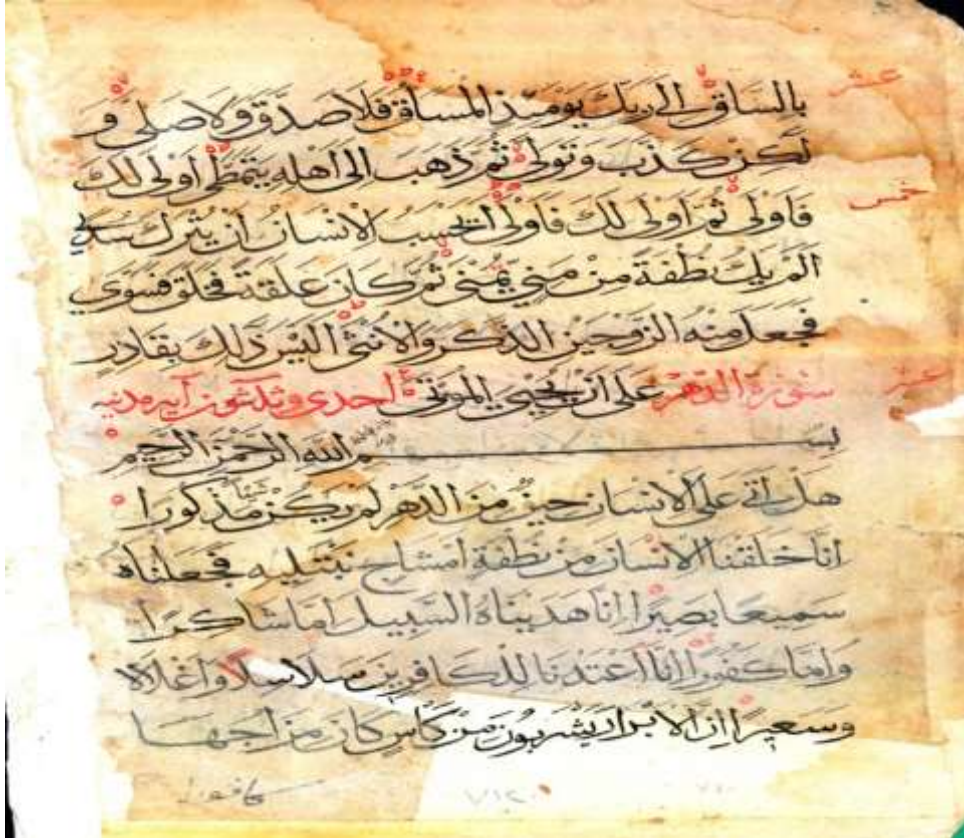 عشر
بالساق الى ربك يومئذ المساق فلا صدق ولا صلى و
لكن كذب وتولى ثم ذهب الى اهله يتمطى اولى لك
خمس
فاولى ثم اولى لك فاولى ايحسب الانسان ان يترك سدى
الم يك نطفة من مني يمنى ثم كان علقة فخلق فسوى
فجعل منه الزوجين الذكر والانثى اليس ذلك بقادر
عشر
سورة الدهر على ان يحيي الموتى احدى وثلثون آية مدنيه
بسم الله الرحمن الرحيم
هل اتى على الانسان حين من الدهر لم يكن شيئا مذكورا
انا خلقنا الانسان من نطفة امشاج نبتليه فجعلناه
سميعا بصيرا انا هديناه السبيل اما شاكرا
واما كفورا انا اعتدنا للكافرين سلاسلا واغلالا
وسعيرا ان الابرار يشربون من كأس كان مزاجها
كافورا